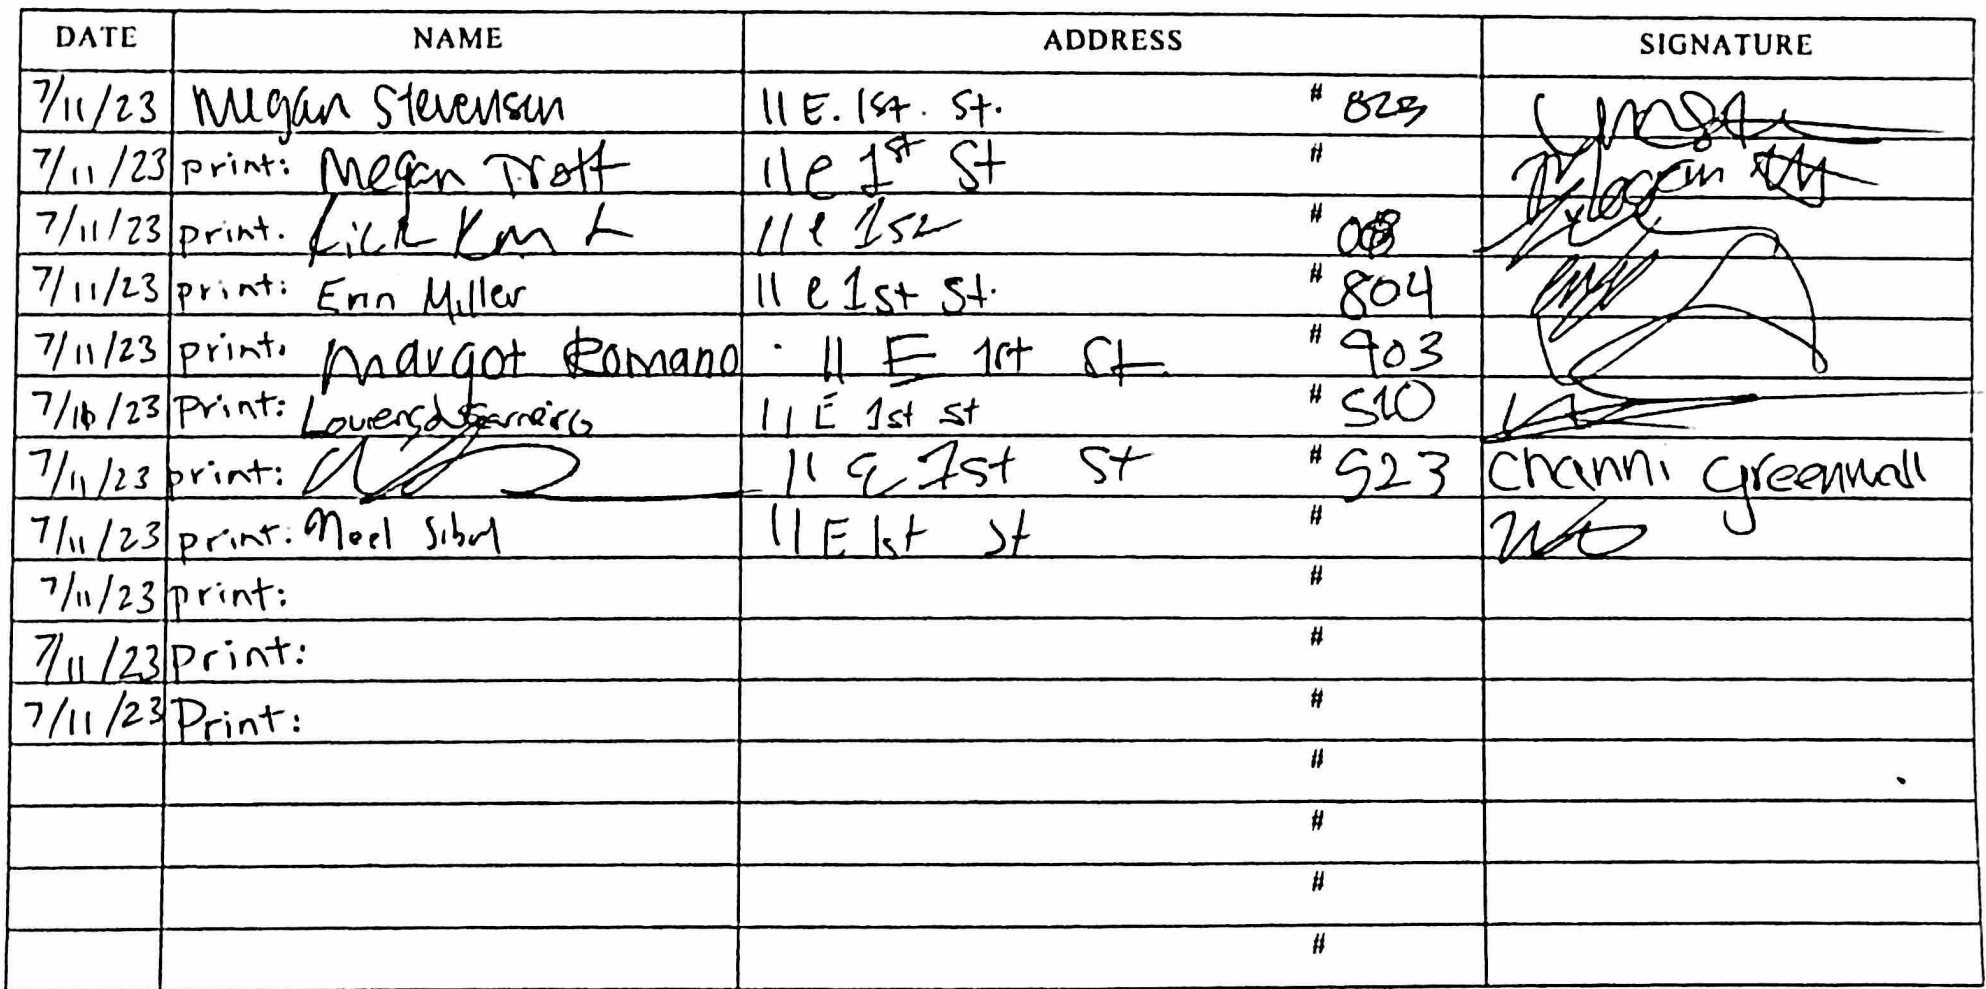 DATE NAME ADDRESS SIGNATURE
7/11/23 Megan Stevenson 11 E. 1st. St. # 825
7/11/23 print: Megan Trott 11 e 1st St #
7/11/23 print. 11 e 1st #
7/11/23 print: Erin Miller 11 e 1st St. # 804
7/11/23 print. Margot Romano 11 E 1st St. # 903
7/10/23 Print: 11 E 1st st # 510
7/11/23 print: 11 E 1st St # 523 Channi Greenwall
7/11/23 print: Noel 11 E 1st St #
7/11/23 print: #
7/11/23 print: #
7/11/23 Print: #
#
#
#
#